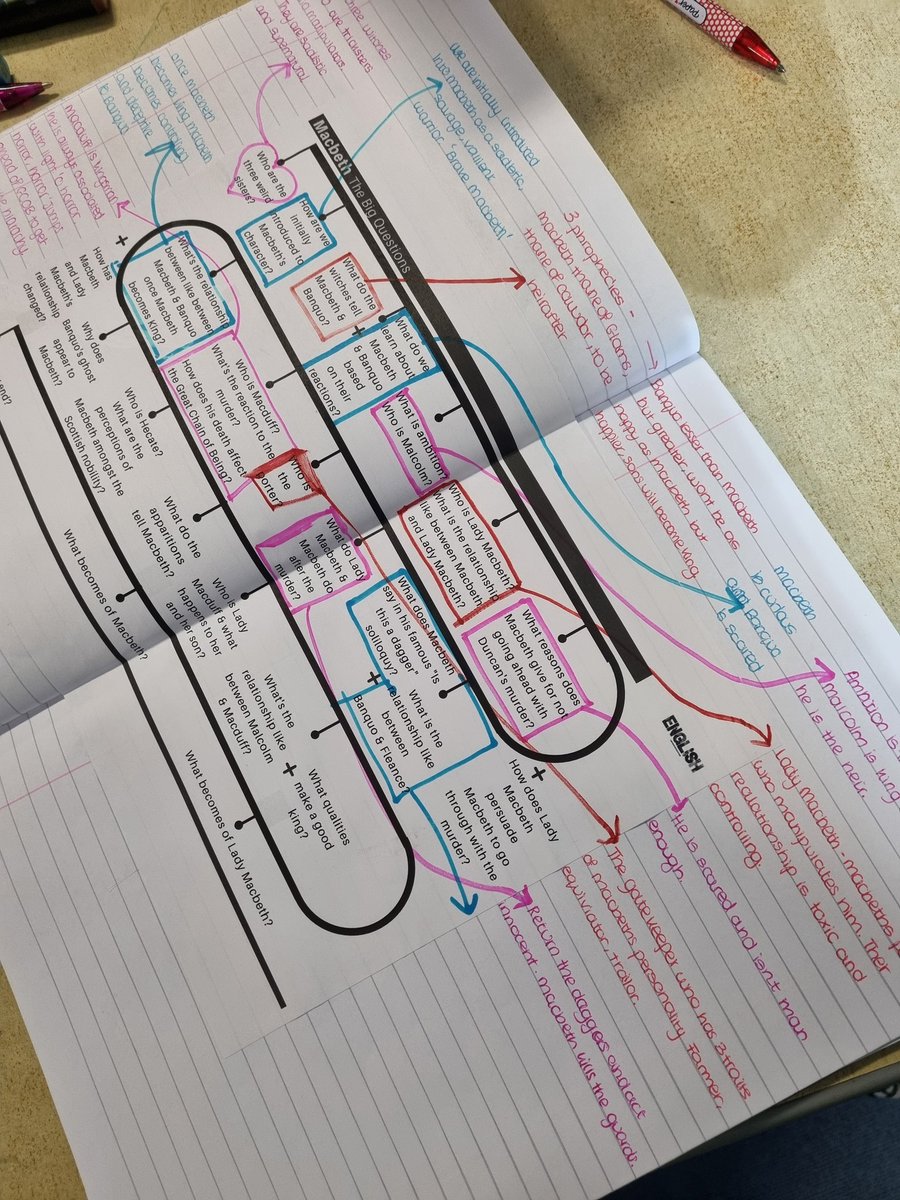 Macbeth The Big Questions
ENGLISH
Who are the
three weird
sisters?
How are we
initially
introduced to
Macbeth's
character?
What do the
witches tell
Macbeth &
Banquo?
+
What do we
learn about
Macbeth
& Banquo
based
on their
reactions?
What is ambition?
Who is Malcolm?
Who is Lady Macbeth?
What is the relationship
like between Macbeth
and Lady Macbeth?
What reasons does
Macbeth give for not
going ahead with
Duncan's murder?
+
How does Lady
Macbeth
persuade
Macbeth to go
through with the
murder?
What does Macbeth
say in his famous "is
this a dagger"
soliloquy?
+
What is the
relationship like
between
Banquo & Fleance
What do Lady
Macbeth &
Macbeth do
after the
murder?
Who is
the
Porter
Who is Macduff?
What's the reaction to the
murder?
How does his death affect
the Great Chain of Being?
What's the relationship
between like between
Macbeth & Banquo
once Macbeth
becomes king?
+
How has
Macbeth
and Lady
Macbeth's
relationship
changed?
Why does
Banquo's ghost
appear to
Macbeth?
Who is Hecate?
What are the
perceptions of
Macbeth amongst the
Scottish nobility?
What do the
apparitions
tell Macbeth?
Who is Lady
Macduff & what
happens to her
and her son?
What's the
relationship like
between Malcolm
& Macduff?
+
What qualities
make a good
king?
What becomes of Lady Macbeth?
What becomes of Macbeth?
end?
three witches
are tricksters
manipulators.
They are sadistic
and supernatural
we are initially introduced
into macbeth as a sadistic,
savage, valliant
warrior. 'Brave macbeth'
3 prophecies -
macbeth thane of Glamis
thane of cawdor, to be
heirafter
Banquo lesser than macbeth
but greater, wont be as
happy as macbeth but
happier, sons will become king
macbeth
is curious
Banquo
is scared
Ambition is
malcolm is king
he is the heir.
Lady macbeth - macbeths
who manipulates him. Ther
realationship is toxic and
controlling
He is scared and isn't man
enough.
The gate keeper who has 3 traits
of macbeths personality. Farmer,
equiviator, trailor.
Return the daggers and act
innocent. macbeth kills the guards.
once macbeth
becomes king macbeth
becomes controlling
and
to Banquo
macduff is
he is always associated
with right to horror
horror, horror, horror'